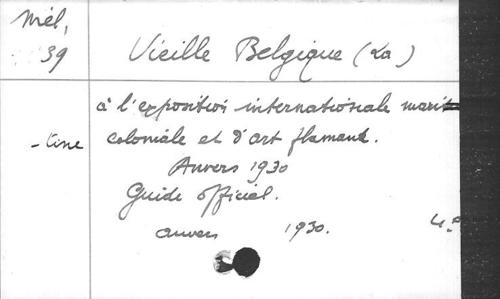 Mél,
39
Vieille Belgique (La)
à l'exposition internationale mari
-time coloniale et d'art flamand.
Anvers 1930
Guide officiel.
Anvers 1930. 4.°